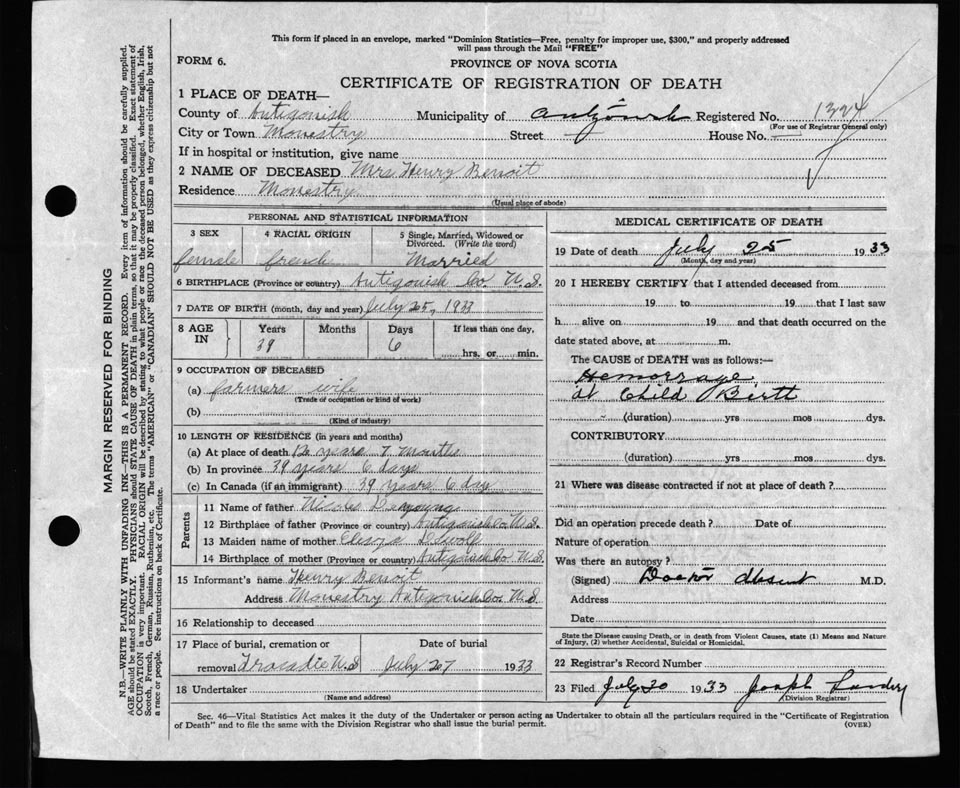 This form if placed in an envelope, marked "Dominion Statistics—Free, penalty for improper use, $300," and properly addressed
will pass through the Mail "FREE"
FORM 6.
PROVINCE OF NOVA SCOTIA
CERTIFICATE OF REGISTRATION OF DEATH
1 PLACE OF DEATH—
County of Antigonish Municipality of Antigonish Registered No. 1324
(For use of Registrar General only)
City or Town Monestry Street — House No. —
If in hospital or institution, give name
2 NAME OF DECEASED Mrs Henry Benoit
Residence Monestry
(Usual place of abode)
PERSONAL AND STATISTICAL INFORMATION
3 SEX 4 RACIAL ORIGIN 5 Single, Married, Widowed or
Divorced. (Write the word)
female french Married
6 BIRTHPLACE (Province or country) Antigonish Co. N.S.
7 DATE OF BIRTH (month, day and year) July 25, 1933
8 AGE IN Years Months Days If less than one day,
39 6 hrs. or min.
9 OCCUPATION OF DECEASED
(a) farmers wife
(Trade of occupation or kind of work)
(b)
(Kind of industry)
10 LENGTH OF RESIDENCE (in years and months)
(a) At place of death years 7 Months
(b) In province 39 years 6 days
(c) In Canada (if an immigrant) 39 years 6 day
Parents
11 Name of father
12 Birthplace of father (Province or country) Antigonish Co. N.S.
13 Maiden name of mother
14 Birthplace of mother (Province or country) Antigonish Co N.S.
15 Informant's name Henry Benoit
Address Monestry Antigonish Co. N.S.
16 Relationship to deceased
17 Place of burial, cremation or Date of burial
removal Tracadie N.S July 27 1933
18 Undertaker
(Name and address)
MEDICAL CERTIFICATE OF DEATH
19 Date of death July 25 1933
(Month, day and year)
20 I HEREBY CERTIFY that I attended deceased from
19 to 19 that I last saw
h alive on 19 and that death occurred on the
date stated above, at m.
The CAUSE of DEATH was as follows:—
Hemorrage
at Child Birth
(duration) yrs mos dys.
CONTRIBUTORY
(duration) yrs mos dys.
21 Where was disease contracted if not at place of death?
Did an operation precede death? Date of
Nature of operation
Was there an autopsy?
(Signed) Doctor absent M.D.
Address
Date
State the Disease causing Death, or in death from Violent Causes, state (1) Means and Nature
of Injury, (2) whether Accidental, Suicidal or Homicidal.
22 Registrar's Record Number
23 Filed July 30 1933 Joseph
(Division Registrar)
Sec. 46—Vital Statistics Act makes it the duty of the Undertaker or person acting as Undertaker to obtain all the particulars required in the "Certificate of Registration
of Death" and to file the same with the Division Registrar who shall issue the burial permit. (OVER)
MARGIN RESERVED FOR BINDING
N.B.—WRITE PLAINLY WITH UNFADING INK—THIS IS A PERMANENT RECORD. Every item of information should be carefully supplied.
AGE should be stated EXACTLY. PHYSICIANS should STATE CAUSE OF DEATH in plain terms, so that it may be properly classified. Exact statement of
OCCUPATION is very important. RACIAL ORIGIN will be described by stating to what people or race the deceased person belonged, whether English, Irish,
Scotch, French, German, Russian, Ruthenian, etc. The terms "AMERICAN" or "CANADIAN" SHOULD NOT BE USED as they express citizenship but not
a race or people. See instructions on back of Certificate.